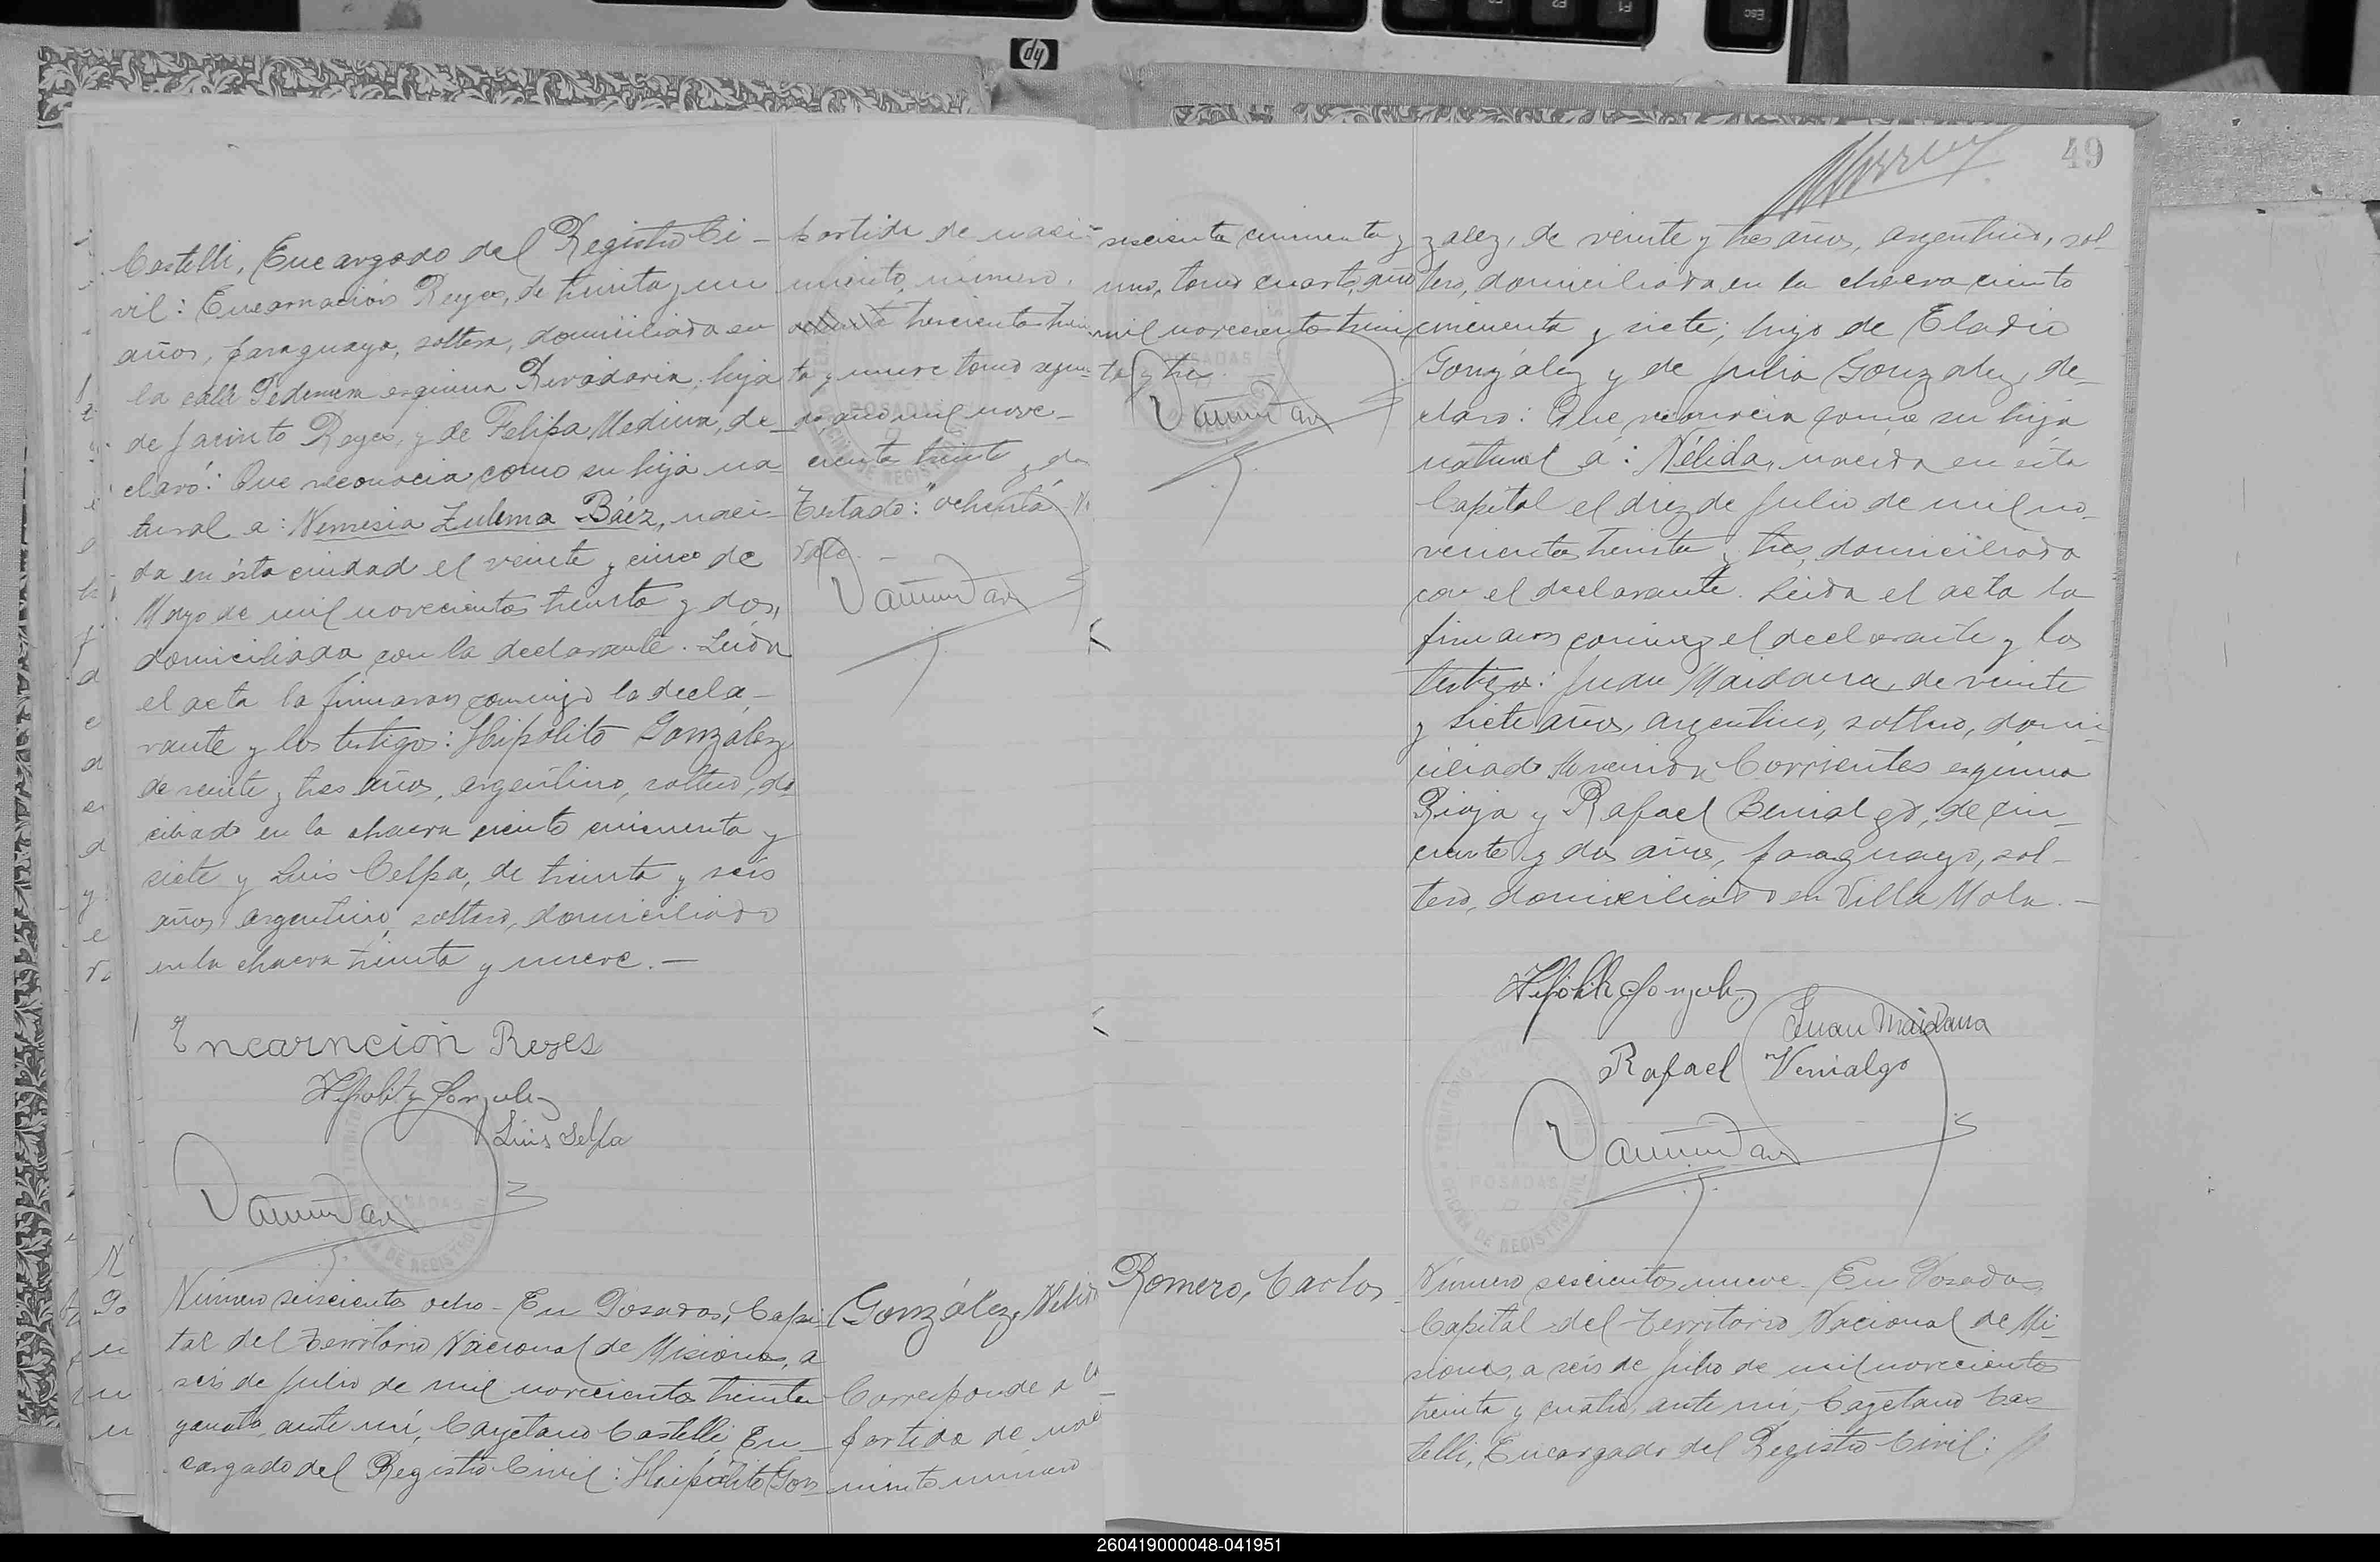 Castelli, Encargado del Registro Ci-
vil: Encarnación Reyes, de treinta y un
años, paraguaya, soltera, domiciliada en
la calle Pedernera esquina Rivadavia, hija
de Jacinto Reyes, y de Felipa Medina, de-
claró: Que reconocia como su hija na-
tural a: Nemesia Zulema Báez, naci-
da en ésta ciudad el veinte y cinco de
Mayo de mil novecientos treinta y dos,
domiciliada con la declarante. Leida
el acta la firmaron conmigo la decla-
rante y los testigos: Hipólito González,
de veinte y tres años, argentino, soltero, do
ciliado en la chacra ciento cincuenta y
siete y Luis Celpa, de treinta y seis
años, argentino, soltero, domiciliado
en la chacra treinta y nueve.-
partida de naci-
miento, número,
ochenta trescientos trein
ta y nueve tomo segun-
do año mil nove-
cientos treinta y dos
Testado: "ochenta" N.
vale.-
Encarnción Reyes
Hipolito Gonzalez
Luis Selpa
POSADAS
Número seiscientos ocho - En Posadas, Capi-
tal del Territorio Nacional de Misiones, a
seis de Julio de mil novecientos treinta
y cuatro, ante mí, Cayetano Castelli, En-
cargado del Registro Civil: Hipólito Gon-
González, Nélida
Corresponde a la
partida de naci
miento número
49
seiscientos cincuenta y
uno, tomo cuarto, año
mil novecientos trein
ta y tres.
zalez, de veinte y tres años, argentino, sol-
tero, domiciliado en la chacra ciento
cincuenta y siete; hijo de Eladio
González y de Julia Gonzalez, de-
claro: Que reconocia como su hija
natural á: Nélida, nacida en ésta
Capital el diez de Julio de mil no-
vecientos treinta y tres, domiciliada
con el declarante. Leida el acta la
firmaron conmigo el declarante y los
testigos: Juan Maidana, de veinte
y siete años, argentino, soltero, domi-
ciliado Avenida Corrientes esquina
Rioja y Rafael Benialgo, de cin-
cuenta y dos años, paraguayo, sol-
tero, domiciliado en Villa Mola.-
Hipolito Gonzalez
Juan Maidana
Rafael Venialgo
POSADAS
OFICINA DE REGISTRO CIVIL
Romero, Carlos
Número seiscientos nueve - En Posadas,
Capital del Territorio Nacional de Mi-
siones, a seis de Julio de mil novecientos
treinta y cuatro, ante mí, Cayetano Cas-
telli, Encargado del Registro Civil:
260419000048-041951